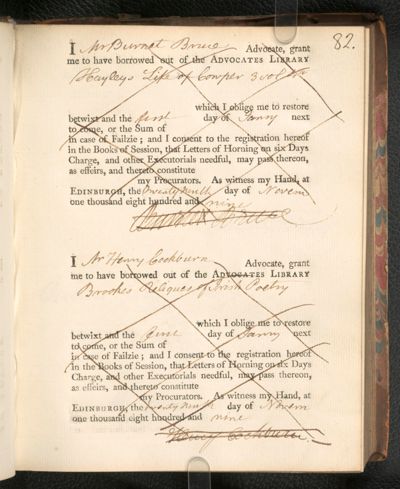 82.
I Mr Burnet Bruce Advocate, grant
me to have borrowed out of the ADVOCATES LIBRARY
Hayley's Life of Cowper 3 vol
which I oblige me to restore
betwixt and the first day of Janry next
to come, or the Sum of
in case of Failzie; and I consent to the registration hereof
in the Books of Session, that Letters of Horning on six Days
Charge, and other Executorials needful, may pass thereon,
as effeirs, and thereto constitute
my Procurators. As witness my Hand, at
EDINBURGH, the twenty ninth day of Novem
one thousand eight hundred and nine
Burnet Bruce
I Mr Henry Cockburn Advocate, grant
me to have borrowed out of the ADVOCATES LIBRARY
Brookes Reliques of Irish Poetry
which I oblige me to restore
betwixt and the first day of Janry next
to come, or the Sum of
in case of Failzie; and I consent to the registration hereof
in the Books of Session, that Letters of Horning on six Days
Charge, and other Executorials needful, may pass thereon,
as effeirs, and thereto constitute
my Procurators. As witness my Hand, at
EDINBURGH, the twenty ninth day of Novem
one thousand eight hundred and nine
Henry Cockburn.